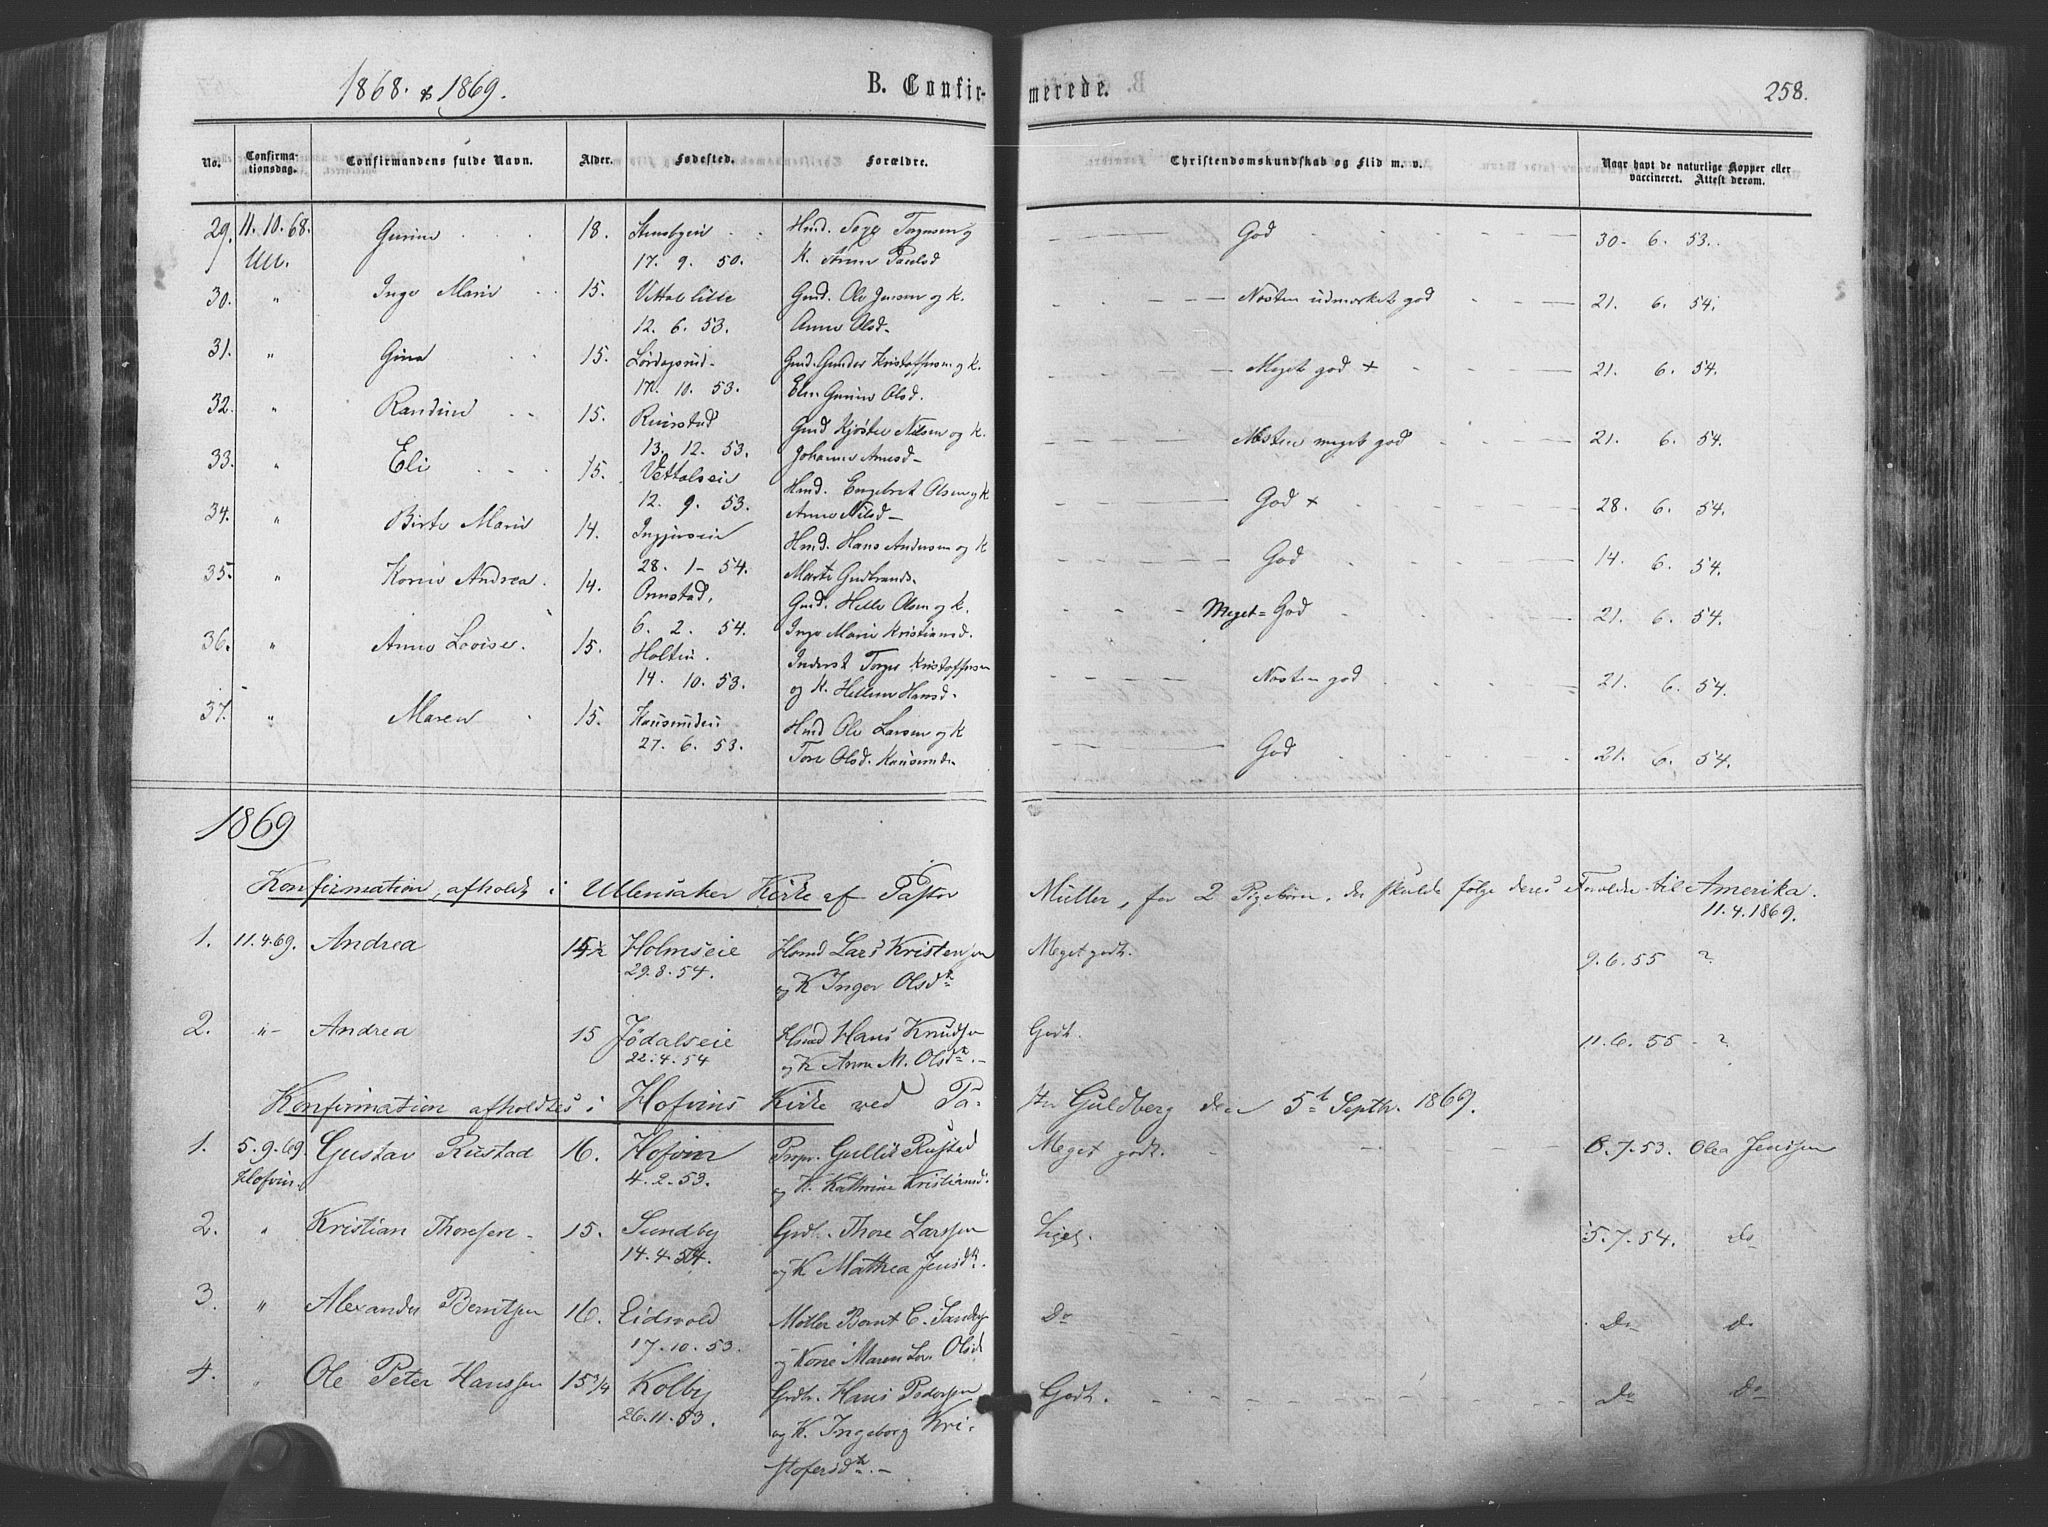 1868. & 1869.
B. Confirmerede.
258.
No.
Confirmationsdag.
Confirmandens fulde Navn.
Alder.
Fødested.
Forældre.
Christendomskundskab og Flid m. v.
Naar havt de naturlige Kopper eller vaccineret. Attest derom.
29. 11. 10. 68. Gurine 18. Stensbyeie Hmd. Torgersen og God 30. 6. 53.
Ull. 17. 9. 50. K. Anne Paulsd
30. " Inge Marie 15. Vettal lille Gmd. Ole Jensen og K. Næsten udmærket god 21. 6. 54.
12. 6. 53. Anne Olsd.
31. " Gina 15. Lørdagsrud Gmd. Gunder Kristoffersen og K. Meget god + 21. 6. 54.
17. 10. 53. Elen Gurine Olsd.
32. " Randine 15. Ruustad Gmd Kjøstel Nilsen og K. Næsten meget god 21. 6. 54.
13. 12. 53. Johanne Arnesd
33. " Eli 15. Vettalseie Hmd. Engebret Olsen og K God + 28. 6. 54.
12. 9. 53. Anne Nilsd
34. " Birte Marie 14. Hmd. Hans Andersen og K God 14. 6. 54.
28. 1 54. Marte Gudbrands.
35. " Korine Andrea. 14. Ormstad. Gmd. Helle Olsen og K. Meget God 21. 6. 54.
6. 2. 54. Inge Marie Kristiansd.
36. " Anne Lovise. 15. Holtin. Inderst Torger Kristoffersen Næsten god 21. 6. 54.
14. 10. 53. og K. Hellene Hansd.
37. " Maren 15. Kauserudeie Hmd Ole Larsen og K God 21. 6. 54.
27. 6. 53. Tore Olsd. Kauserudeie
1869
Konfirmation, afholdt i Ullensaker Kirke af Pastor Müller, for 2 Pigebørn, der skulde følge deres Forældre til Amerika.
11. 4. 1869.
1. 11.4.69. Andrea 14½ Holmseie Hsmd Lars Kristensen Meget godt. 9.6.55 ?
29.8.54. og K Inger Olsdtr
2. " Andrea 15 Jødalseie Hsmd Hans Knudsen Godt. 11.6.55 ?
22.4.54 og K Anna M. Olsdtr.
Konfirmation afholdtes i Hofvins Kirke ved Pastor Guldberg den 5te Septbr. 1869.
1. 5.9.69 Gustav Rustad 16. Hofvin Propr. Gullik Rustad Meget godt. 8.7.53. Olea Jenssen
Hofvin. 4.2.53. og K. Kathrine Kristiansd.
2. " Kristian Thoresen 15. Sundby Grdbr. Thore Larssen Liget. 5.7.54. Do
14.4.54. og K Mathea Jensdtr.
3. " Alexander Berntsen 16. Eidsvold Møller Bernt C. Sandby Do Do Do
17.10.53. og Kone Maren Olsd
4. " Ole Peter Hanssen 15¾ Kolby Grdbr. Hans Pedersen Godt. Do Do
26.11.53. og K. Ingeborg Kristofersdtr.